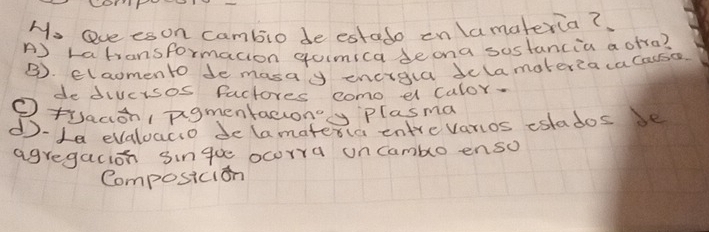 4. Que es on cambio de estado en la materia?.
A) La transformacion quimica de ona sostancia a otra?
B). el aomento de masa y energia de la matereia ca causa
de diversos factores como el calor.
C) Fijación, pigmentacion y plasma
d)- La evaloacio de la materia entre varios estados de
agregación sin que ocorra on cambio en so
Composición